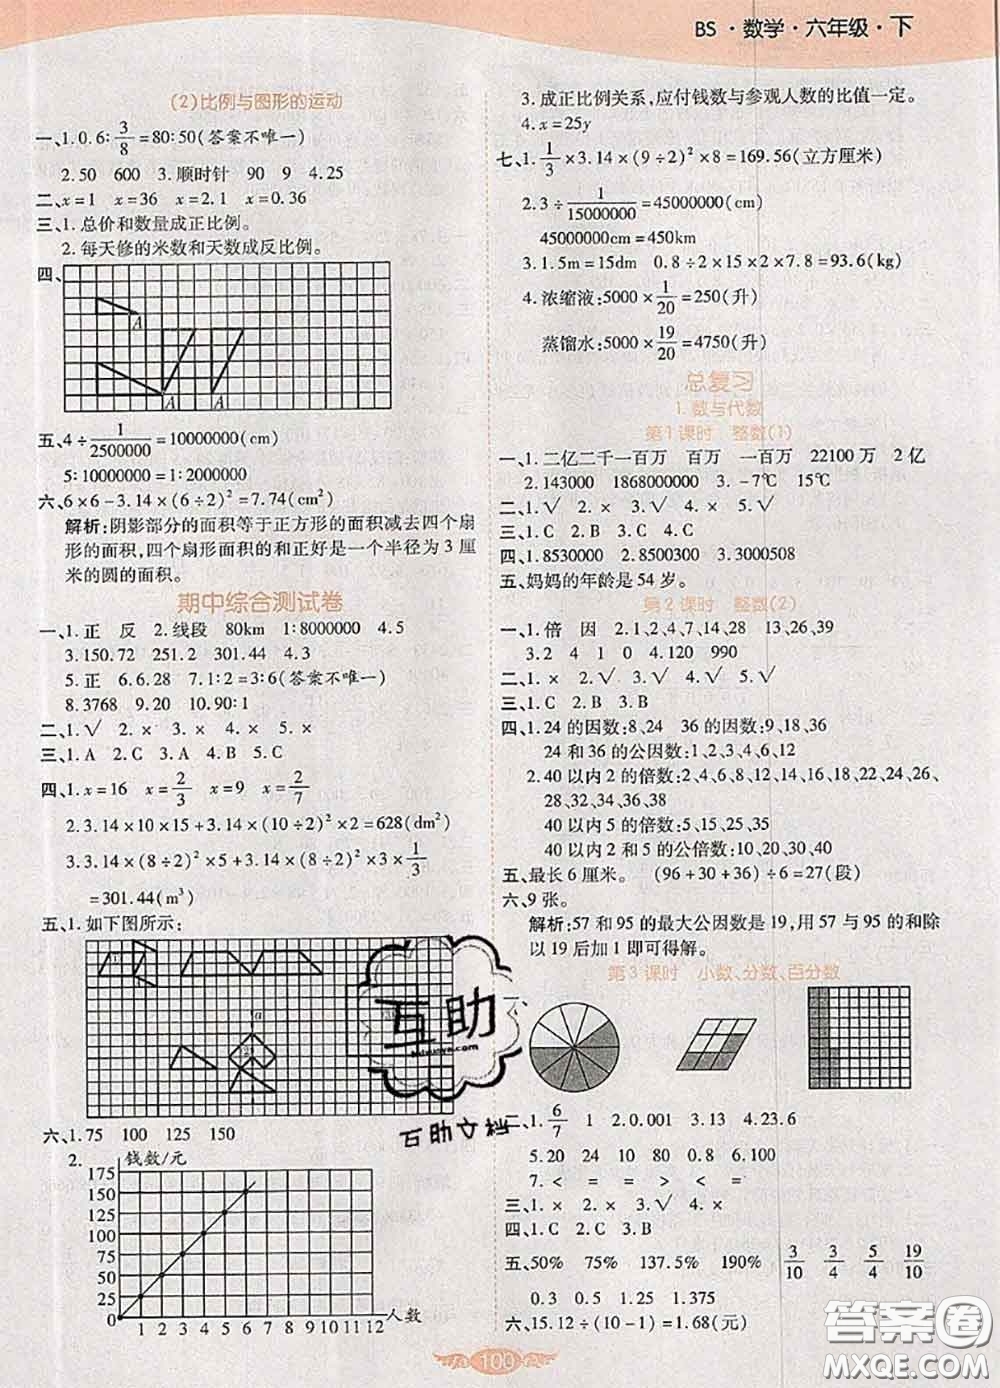 BS·数学·六年级·下
(2)比例与图形的运动
一、1.0.6:3/8=80:50(答案不唯一)
2.50 600 3.顺时针 90 9 4.25
二、x=1 x=36 x=2.1 x=0.36
三、1.总价和数量成正比例。
2.每天修的米数和天数成反比例。
四、
A
A A
五、4÷1/2500000=10000000(cm)
5:10000000=1:2000000
六、6×6-3.14×(6÷2)²=7.74(cm²)
解析:阴影部分的面积等于正方形的面积减去四个扇
形的面积,四个扇形面积的和正好是一个半径为3厘
米的圆的面积。
期中综合测试卷
一、1.正 反 2.线段 80km 1:8000000 4.5
3.150.72 251.2 301.44 4.3
5.正 6.6.28 7.1:2=3:6(答案不唯一)
8.3768 9.20 10.90:1
二、1.√ 2.× 3.× 4.× 5.×
三、1.A 2.C 3.A 4.B 5.C
四、1.x=16 x=2/3 x=9 x=2/7
2.3.14×10×15+3.14×(10÷2)²×2=628(dm²)
3.3.14×(8÷2)²×5+3.14×(8÷2)²×3×1/3
=301.44(m³)
五、1.如下图所示:
1
a
2
六、1.75 100 125 150
2. 钱数/元
175
150
125
100
75
50
25
0 1 2 3 4 5 6 7 8 9 10 11 12 人数
3.成正比例关系,应付钱数与参观人数的比值一定。
4.x=25y
七、1.1/3×3.14×(9÷2)²×8=169.56(立方厘米)
2.3÷1/15000000=45000000(cm)
45000000cm=450km
3.1.5m=15dm 0.8÷2×15×2×7.8=93.6(kg)
4.浓缩液:5000×1/20=250(升)
蒸馏水:5000×19/20=4750(升)
总复习
1.数与代数
第1课时 整数(1)
一、1.二亿二千一百万 百万 一百万 22100万 2亿
2.143000 1868000000 3.-7℃ 15℃
二、1.√ 2.× 3.√ 4.× 5.×
三、1.C 2.D 3.C 4.C
四、1.8530000 2.8500300 3.3000508
五、妈妈的年龄是54岁。
第2课时 整数(2)
一、1.倍 因 2.1、2、4、7、14、28 13、26、39
3.2 4 1 0 4.120 990
二、1.× 2.√ 3.× 4.√ 5.√
三、1.C 2.B 3.B
四、1.24的因数:8、24 36的因数:9、18、36
24和36的公因数:1、2、3、4、6、12
2.40以内2的倍数:2、4、6、8、12、14、16、18、22、24、26、
28、32、34、36、38
40以内5的倍数:5、15、25、35
40以内2和5的公倍数:10、20、30、40
五、最长6厘米。 (96+30+36)÷6=27(段)
六、9张。
解析:57和95的最大公因数是19,用57与95的和除
以19后加1即可得解。
第3课时 小数、分数、百分数
二、1.6/7 1 2.0.001 3.13 4.23.6
5.20 24 30 80 0.8 6.100
7.< = = > < =
三、1.× 2.× 3.√ 4.×
四、1.C 2.C 3.B
五、50% 75% 137.5% 190% 3/10 3/4 5/4 19/10
0.3 0.5 1.25 1.375
六、15.12÷(10-1)=1.68(元)
互助
互助文档
100
答案圈
MXQE.COM